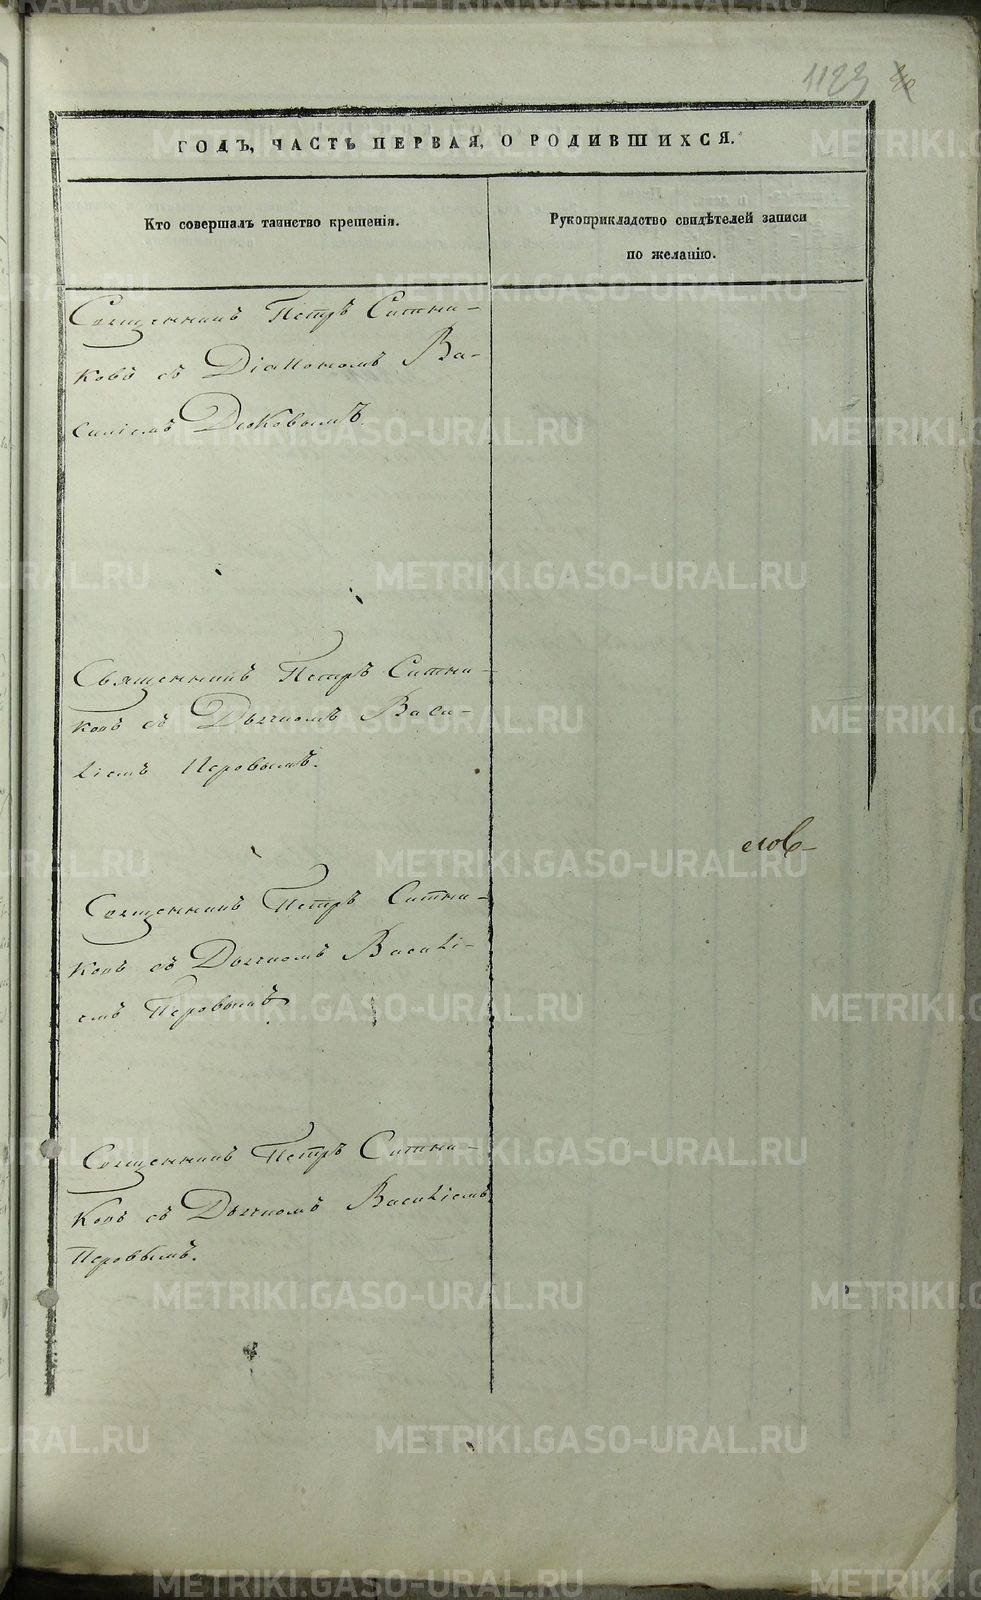 1123
ГОДЪ, ЧАСТЬ ПЕРВАЯ, О РОДИВШИХСЯ.
Кто совершалъ таинство крещенія.
Рукоприкладство свидѣтелей записи
по желанію.
Священникъ Петръ Ситни-
ковъ съ Діакономъ Ва-
силіемъ
Священникъ Петръ Ситни-
ковъ съ Дьячкомъ Васи-
ліемъ Перовымъ.
Священникъ Петръ Ситни-
ковъ съ Дьячкомъ Василі-
емъ Перовымъ.
Священникъ Петръ Ситни-
ковъ съ Дьячкомъ Василіемъ
Перовымъ.
METRIKI.GASO-URAL.RU